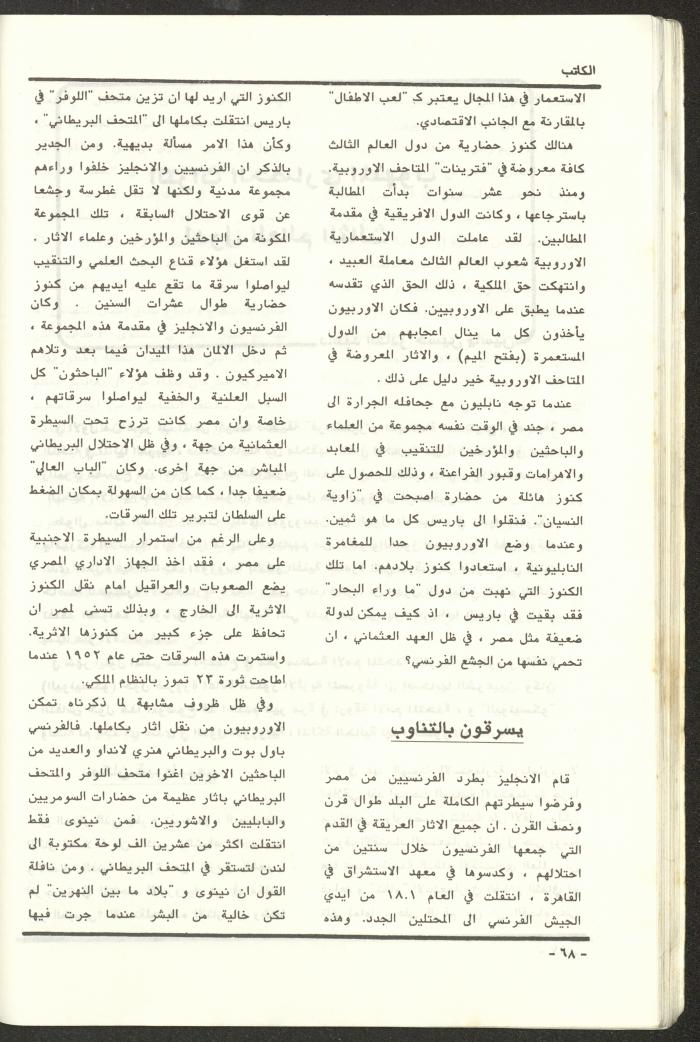 الكاتب
الاستعمار في هذا المجال يعتبر كـ "لعب الاطفال"
بالمقارنة مع الجانب الاقتصادي.
هنالك كنوز حضارية من دول العالم الثالث
كافة معروضة في "فترينات" المتاحف الاوروبية.
ومنذ نحو عشر سنوات بدأت المطالبة
باسترجاعها ، وكانت الدول الافريقية في مقدمة
المطالبين. لقد عاملت الدول الاستعمارية
الاوروبية شعوب العالم الثالث معاملة العبيد ،
وانتهكت حق الملكية ، ذلك الحق الذي تقدسه
عندما يطبق على الاوروبيين. فكان الاوربيون
يأخذون كل ما ينال اعجابهم من الدول
المستعمرة (بفتح الميم) ، والاثار المعروضة في
المتاحف الاوروبية خير دليل على ذلك .
عندما توجه نابليون مع جحافله الجرارة الى
مصر ، جند في الوقت نفسه مجموعة من العلماء
والباحثين والمؤرخين للتنقيب في المعابد
والاهرامات وقبور الفراعنة ، وذلك للحصول على
كنوز هائلة من حضارة اصبحت في "زاوية
النسيان". فنقلوا الى باريس كل ما هو ثمين.
وعندما وضع الاوروبيون حدا للمغامرة
النابليونية ، استعادوا كنوز بلادهم. اما تلك
الكنوز التي نهبت من دول "ما وراء البحار"
فقد بقيت في باريس ، اذ كيف يمكن لدولة
ضعيفة مثل مصر ، في ظل العهد العثماني ، ان
تحمي نفسها من الجشع الفرنسي؟
يسرقون بالتناوب
قام الانجليز بطرد الفرنسيين من مصر
وفرضوا سيطرتهم الكاملة على البلد طوال قرن
ونصف القرن . ان جميع الاثار العريقة في القدم
التي جمعها الفرنسيون خلال سنتين من
احتلالهم ، وكدسوها في معهد الاستشراق في
القاهرة ، انتقلت في العام ١٨٠١ من ايدي
الجيش الفرنسي الى المحتلين الجدد. وهذه
الكنوز التي اريد لها ان تزين متحف "اللوفر" في
باريس انتقلت بكاملها الى "المتحف البريطاني" ،
وكأن هذا الامر مسألة بديهية. ومن الجدير
بالذكر ان الفرنسيين والانجليز خلفوا وراءهم
مجموعة مدنية ولكنها لا تقل غطرسة وجشعا
عن قوى الاحتلال السابقة ، تلك المجموعة
المكونة من الباحثين والمؤرخين وعلماء الاثار .
لقد استغل هؤلاء قناع البحث العلمي والتنقيب
ليواصلوا سرقة ما تقع عليه ايديهم من كنوز
حضارية طوال عشرات السنين . وكان
الفرنسيون والانجليز في مقدمة هذه المجموعة ،
ثم دخل الالمان هذا الميدان فيما بعد وتلاهم
الاميركيون . وقد وظف هؤلاء "الباحثون" كل
السبل العلنية والخفية ليواصلوا سرقاتهم ،
خاصة وان مصر كانت ترزح تحت السيطرة
العثمانية من جهة ، وفي ظل الاحتلال البريطاني
المباشر من جهة اخرى. وكان "الباب العالي"
ضعيفا جدا ، كما كان من السهولة بمكان الضغط
على السلطان لتبرير تلك السرقات.
وعلى الرغم من استمرار السيطرة الاجنبية
على مصر ، فقد اخذ الجهاز الاداري المصري
يضع الصعوبات والعراقيل امام نقل الكنوز
الاثرية الى الخارج ، وبذلك تسنى لمصر ان
تحافظ على جزء كبير من كنوزها الاثرية.
واستمرت هذه السرقات حتى عام ١٩٥٢ عندما
اطاحت ثورة ٢٣ تموز بالنظام الملكي.
وفي ظل ظروف مشابهة لما ذكرناه تمكن
الاوروبيون من نقل اثار بكاملها. فالفرنسي
باول بوت والبريطاني هنري لانداو والعديد من
الباحثين الاخرين اغنوا متحف اللوفر والمتحف
البريطاني باثار عظيمة من حضارات السومريين
والبابليين والاشوريين. فمن نينوى فقط
انتقلت اكثر من عشرين الف لوحة مكتوبة الى
لندن لتستقر في المتحف البريطاني . ومن نافلة
القول ان نينوى و "بلاد ما بين النهرين" لم
تكن خالية من البشر عندما جرت فيها
- ٦٨ -